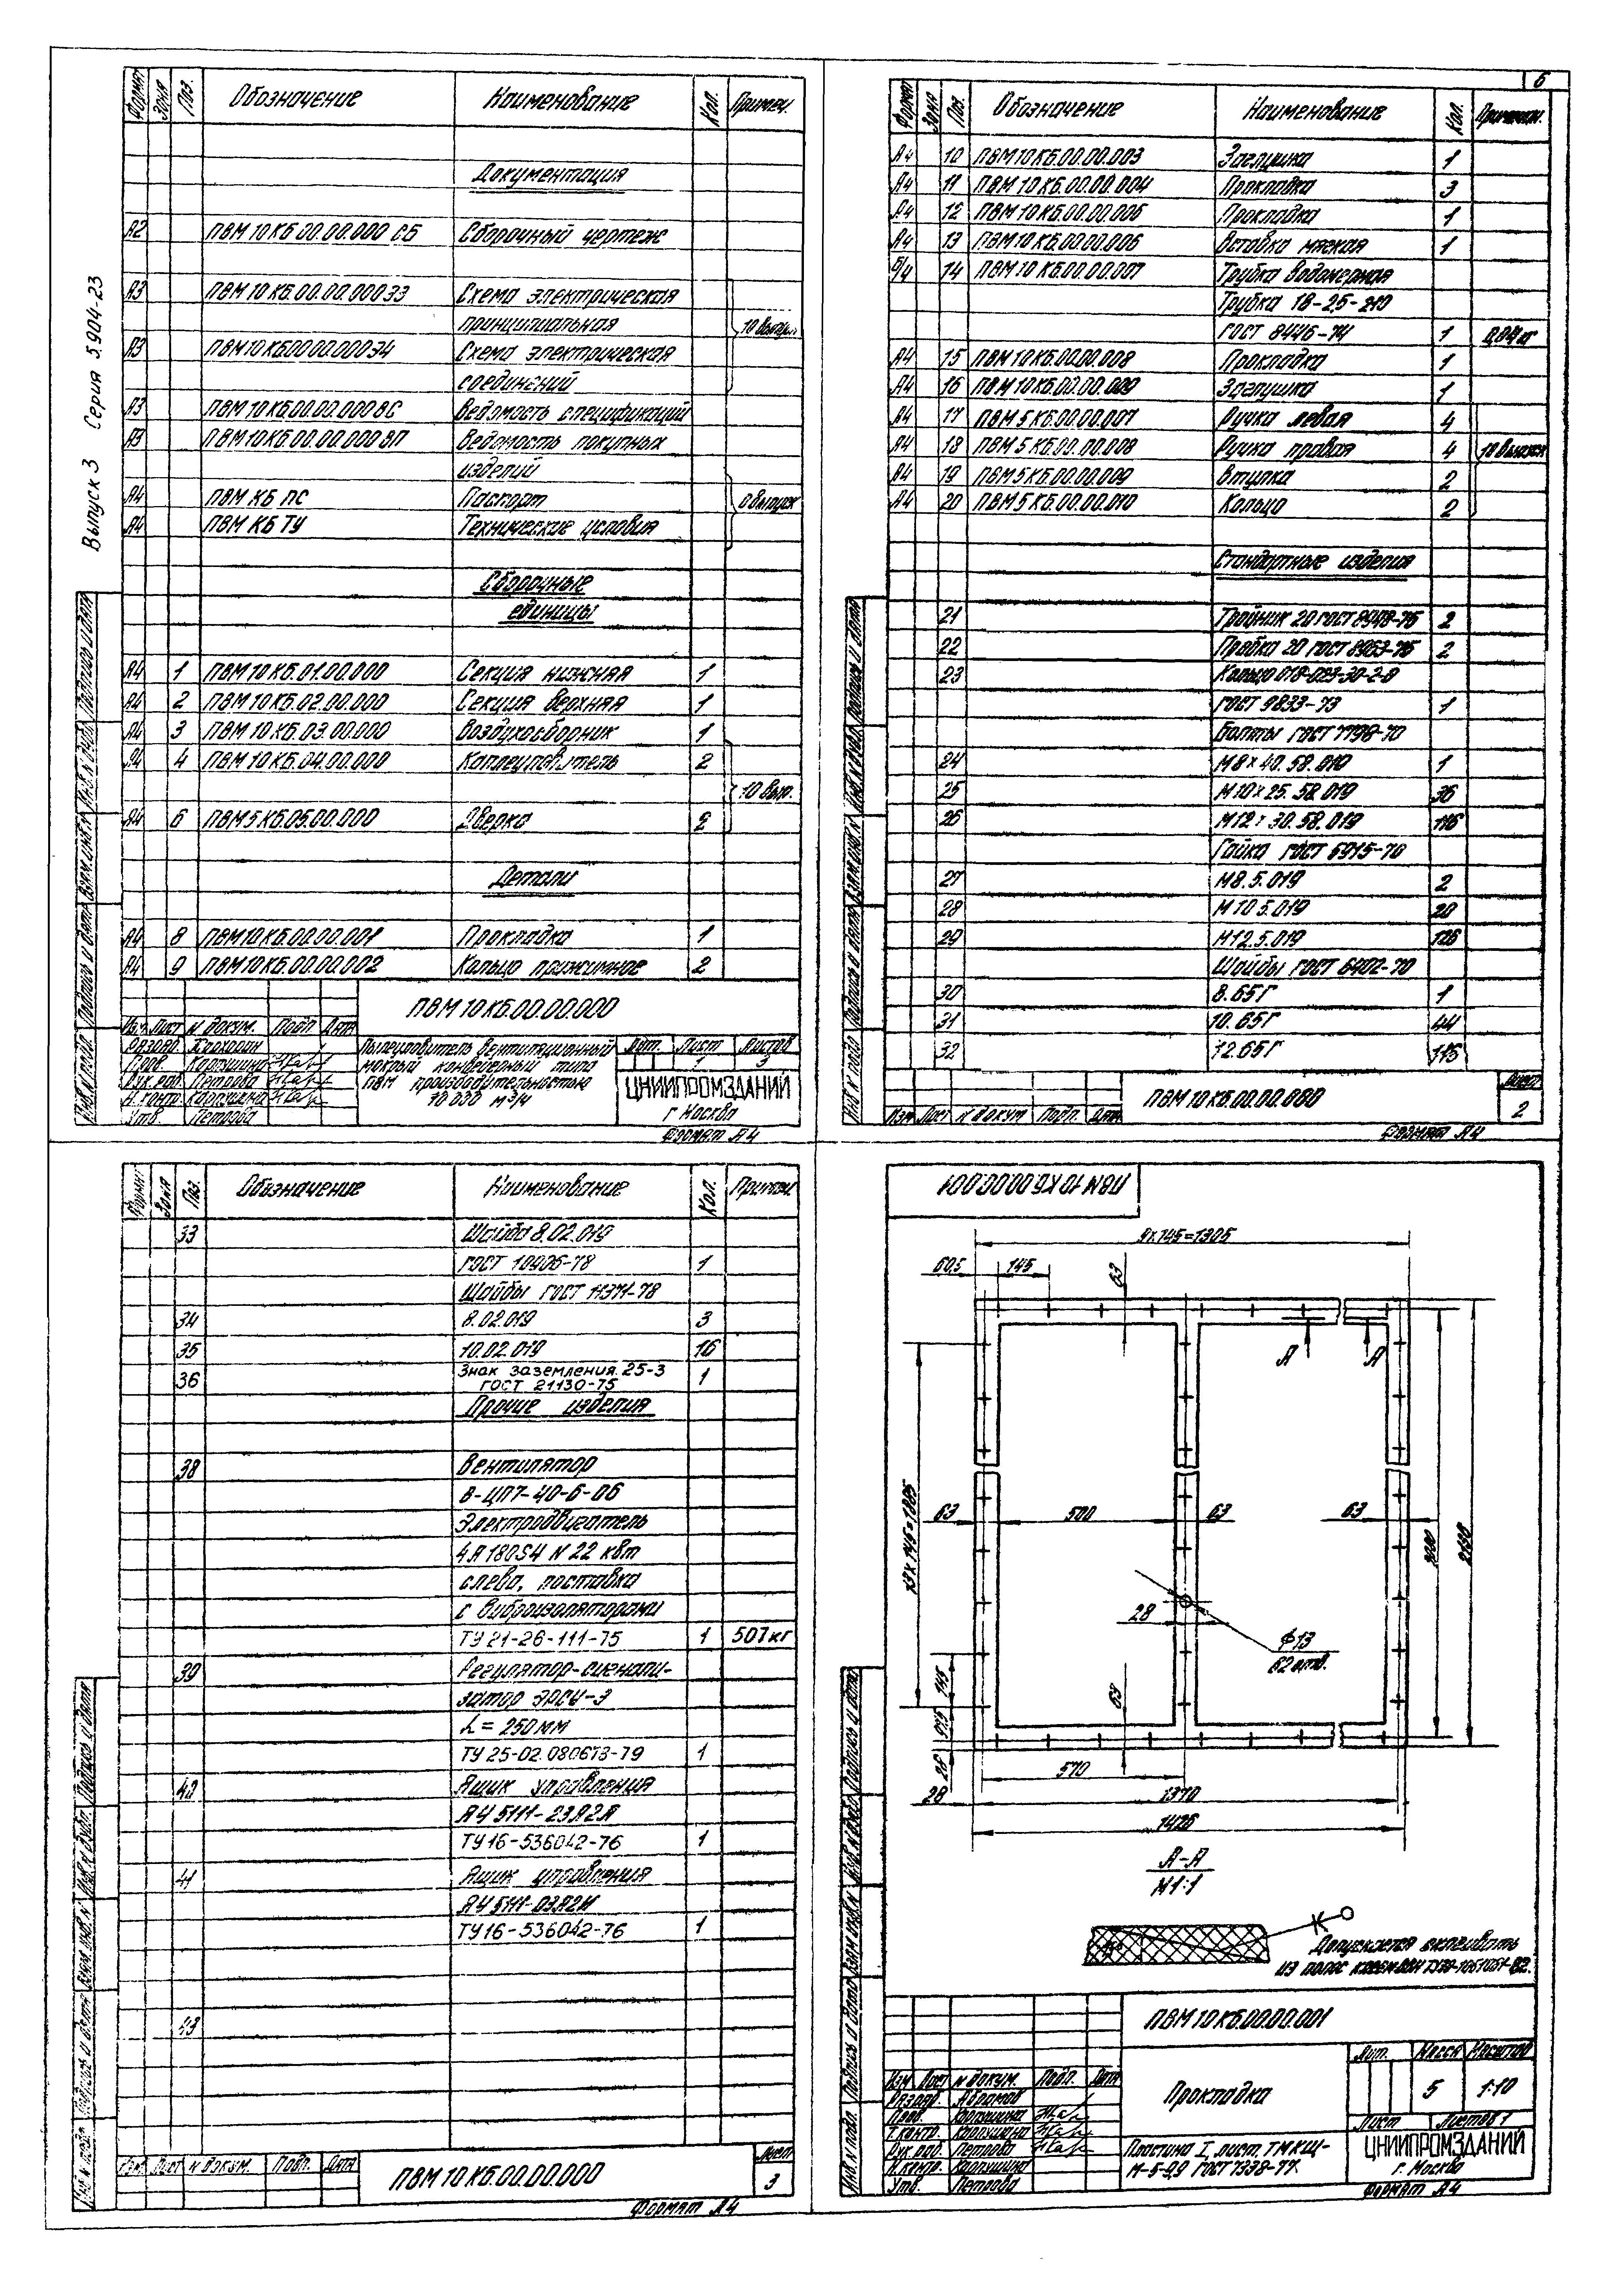 6
Выпуск 3 Серия 5.904-23
Формат Зона Поз. Обозначение Наименование Кол. Примеч.
Документация
А2 ПВМ 10 КБ.00.00.000 СБ Сборочный чертеж
А3 ПВМ 10 КБ.00.00.000 Э3 Схема электрическая
принципиальная 10 выпуск
А3 ПВМ 10 КБ.00.00.000 Э4 Схема электрическая
соединений
А3 ПВМ 10 КБ.00.00.000 ВС Ведомость спецификаций
А3 ПВМ 10 КБ.00.00.000 ВП Ведомость покупных
изделий
А4 ПВМ КБ ПС Паспорт 0 выпуск
А4 ПВМ КБ ТУ Технические условия
Сборочные
единицы
А4 1 ПВМ 10 КБ.01.00.000 Секция нижняя 1
А4 2 ПВМ 10 КБ.02.00.000 Секция верхняя 1
А4 3 ПВМ 10.КБ.03.00.000 Воздухосборник 1
А4 4 ПВМ 10 КБ.04.00.000 Каплеуловитель 2
10 вып.
А4 6 ПВМ 5 КБ.05.00.000 Дверка 2
Детали
А4 8 ПВМ 10 КБ.00.00.001 Прокладка 1
А4 9 ПВМ 10 КБ.00.00.002 Кольцо прижимное 2
ПВМ 10 КБ.00.00.000
Изм. Лист N докум. Подп Дата
Разраб.
Пров. Карпушина
Рук.раб. Петрова
Н.контр. Карпушина
Утв. Петрова
Пылеуловитель вентиляционный
мокрый конвейерный типа
ПВМ производительностью
10 000 м³/ч
Лит. Лист Листов
1 3
ЦНИИПРОМЗДАНИЙ
г Москва
Формат А4
Формат Зона Поз. Обозначение Наименование Кол. Примечан.
А4 10 ПВМ 10 КБ.00.00.003 Заглушка 1
А4 11 ПВМ 10 КБ.00.00.004 Прокладка 3
А4 12 ПВМ 10 КБ.00.00.005 Прокладка 1
А4 13 ПВМ 10 КБ.00.00.006 Вставка мягкая 1
Б/4 14 ПВМ 10 КБ.00.00.007 Трубка водомерная
Трубка 18-2,5-210
ГОСТ 8446-74 1 0,04 кг
А4 15 ПВМ 10 КБ.00.00.008 Прокладка 1
А4 16 ПВМ 10 КБ.00.00.009 Заглушка 1
А4 17 ПВМ 5 КБ.00.00.007 Ручка левая 4
А4 18 ПВМ 5 КБ.00.00.008 Ручка правая 4 10 выпуск
А4 19 ПВМ 5 КБ.00.00.009 Втулка 2
А4 20 ПВМ 5 КБ.00.00.010 Кольцо 2
Стандартные изделия
21 Тройник 20 ГОСТ 8948-75 2
22 Пробка 20 ГОСТ 8963-75 2
23 Кольцо 018-023-30-2-8
ГОСТ 9833-73 1
Болты ГОСТ 7798-70
24 М8×40.58.019 1
25 М10×25.58.019 36
26 М12×30.58.019 116
Гайка ГОСТ 5915-70
27 М8.5.019 2
28 М10.5.019 20
29 М12.5.019 126
Шайбы ГОСТ 6402-70
30 8.65Г 1
31 10.65Г 44
32 12.65Г 115
Изм Лист N докум Подп. Дата
ПВМ 10 КБ.00.00.000
Лист
2
Формат А4
Формат Зона Поз. Обозначение Наименование Кол. Примечан.
33 Шайба 8.02.019
ГОСТ 10906-78 1
Шайбы ГОСТ 11371-78
34 8.02.019 3
35 10.02.019 16
36 Знак заземления 25-3
ГОСТ 21130-75 1
Прочие изделия
38 Вентилятор
В-ЦП7-40-6-06
Электродвигатель
4А180S4 N 22 кВт
слева, поставка
с виброизоляторами
ТУ 21-26-111-75 1 507 кг
39 Регулятор-сигнали-
затор ЭРСУ-3
L = 250 мм
ТУ 25-02.080678-79 1
40 Ящик управления
ЯУ 5111-23А2А
ТУ 16-536042-76 1
41 Ящик управления
ЯУ 5111-03А2И
ТУ 16-536042-76 1
43
Изм Лист N докум. Подп. Дата
ПВМ 10 КБ.00.00.000
Лист
3
Формат А4
ПВМ 10 КБ.00.00.001
9×145=1305
60,5 145 63
А А
13×145=1885
63 500 63 63
28
ϕ13
62 отв.
145
63
28
570
28
1370
1426
А-А
М1:1
Допускается склеивать
из полос
ПВМ 10 КБ.00.00.001
Изм Лист N докум. Подп. Дата
Разраб. Абрамов
Пров. Карпушина
Т.контр. Карпушина
Рук.раб. Петрова
Н.контр. Карпушина
Утв. Петрова
Прокладка
Лит. Масса Масштаб
5 1:10
Лист Листов 1
Пластина I, лист, ТМКЩ-
М-5-9,9 ГОСТ 7338-77.
ЦНИИПРОМЗДАНИЙ
г. Москва
Формат А4